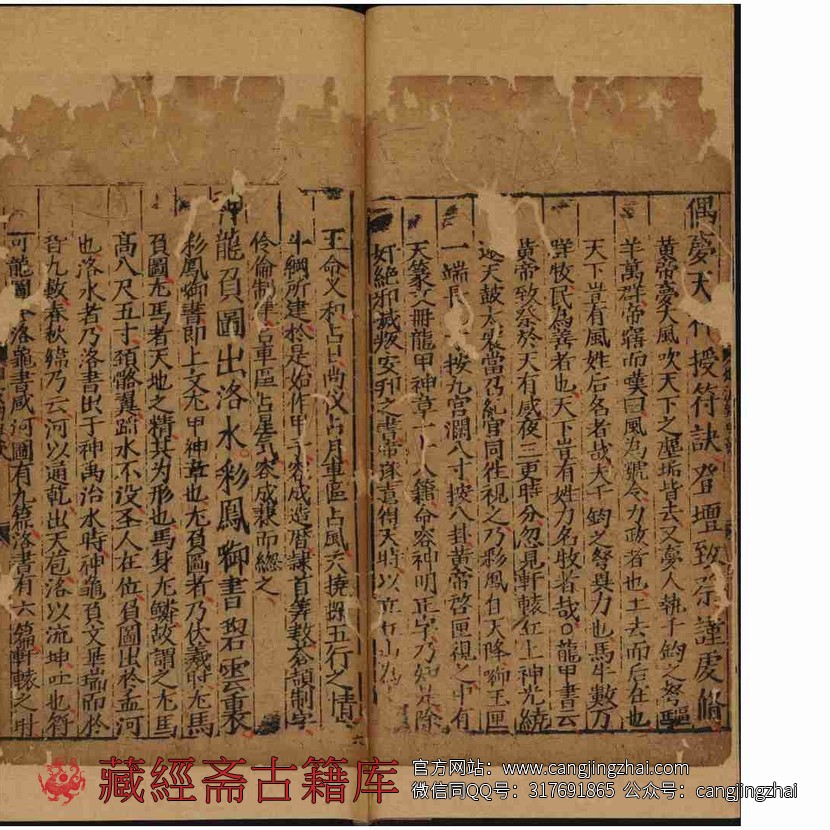 偶夢天神授符訣登壇致祭謹虔脩
黃帝夢大風吹天下之塵垢皆去又夢人執千鈞之弩驅
羊萬群帝寤而嘆曰風為號令力政者也土去而后在也
天下豈有風姓后名者哉夫千鈞之弩異力也馬牛數万
群牧民為善者也天下豈有姓力名牧者哉〇龍甲書云
黃帝致祭於天有感夜三更時分忽見軒轅缸上神光繞
天鼓太裳當乃紀官同徃視之乃彩鳳自天降啣玉匣
一端長按九宮濶八寸按八卦黃帝啓匣視之中有
天篆文冊龍甲神章十八篇命容神明正字乃知是除
奸絕邪滅叛安刑之書帝得天時以
王命羲和占日尚儀占月車區占風大撓探五行之情
斗綱所建於是始作甲子容成造曆隸首筭數蒼頡制字
伶倫制律占車區占星氣容成裳而緫之
神龍負圖出洛水彩鳳啣書碧雲裏
彩鳳啣書即上文龙甲神章也龙負啚者乃伏羲時龙馬
負圖龙馬者天地之精其为形也馬身龙鱗故謂之龙馬
髙八尺五寸頚骼翼踏水不没圣人在位負圖出於孟河
也洛水者乃洛書出于神禹治水時神龜負文畢瑞而於
背九數春秋緯乃云河以通乾出天苞洛以流坤吐也符
可龍圖洛龜書感河圖有九篇洛書有六篇軒轅之时
藏經斋古籍库
官方网站：www.cangjingzhai.com
微信同QQ号：317691865 公众号：cangjingzhai